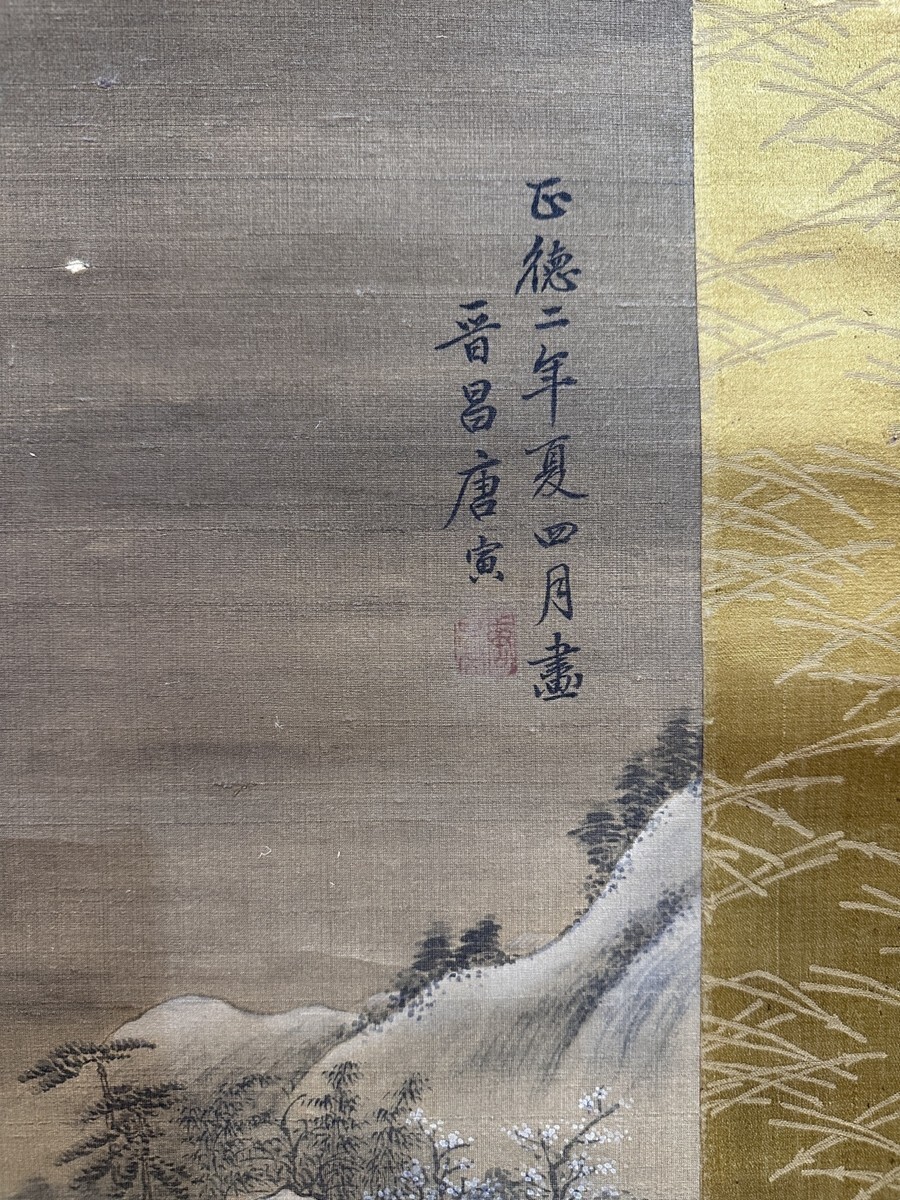 正德二年夏四月畫
晋昌唐寅